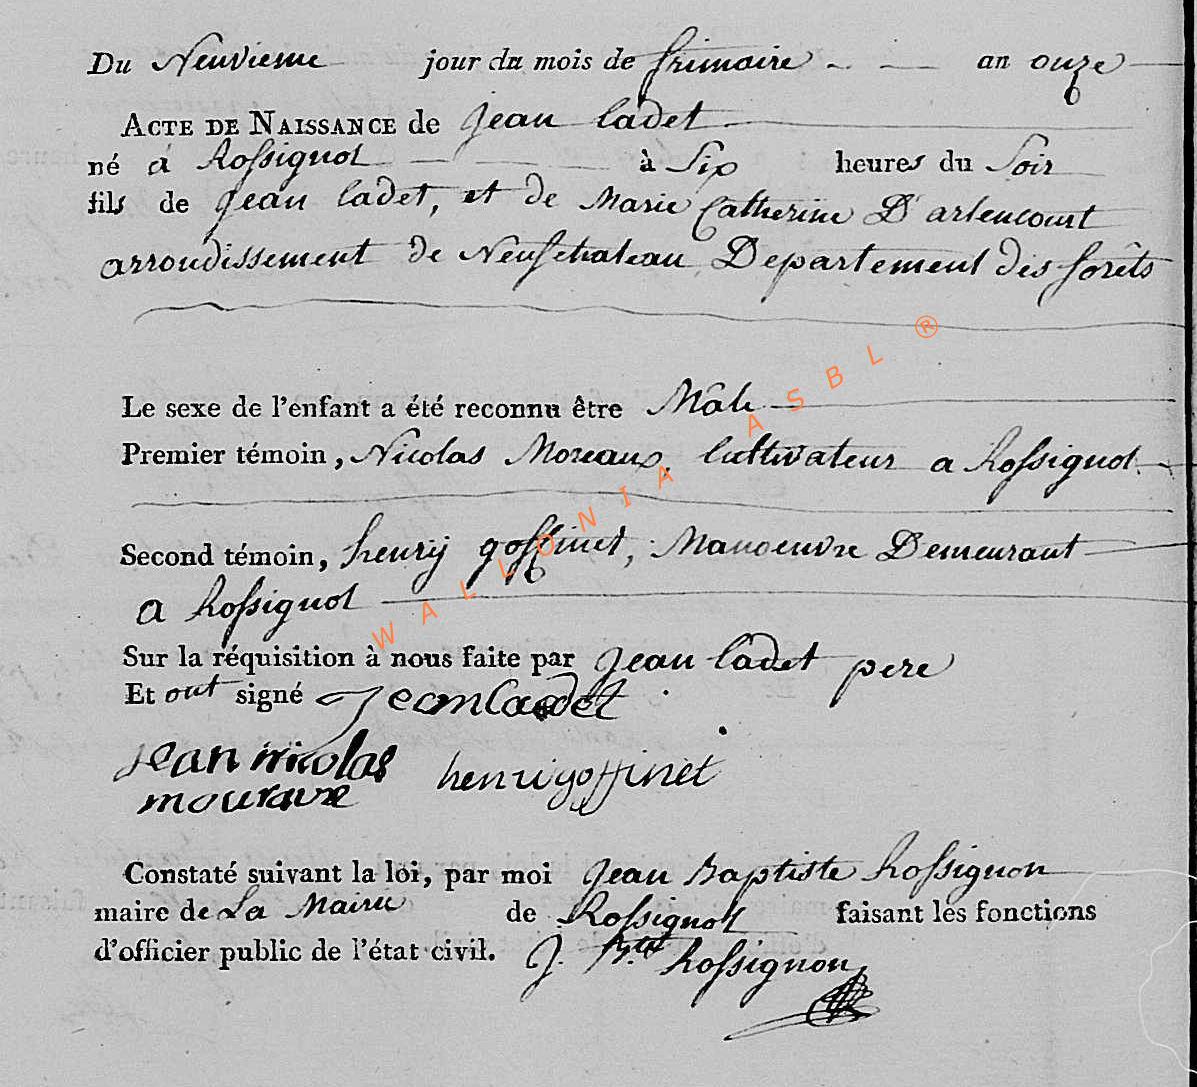 Du Neuvieme jour du mois de frimaire an onze
ACTE DE NAISSANCE de Jean Cadet
né à Rossignol à Six heures du Soir
fils de Jean Cadet, et de Marie Catherine D'arlencourt
arrondissement de Neufchateau Departement des forêts
Le sexe de l'enfant a été reconnu être Mâle
Premier témoin, Nicolas Moreaux. Cultivateur a Rossignol.
Second témoin, henry goffinet, Manoeuvre Demeurant
a Rossignol
Sur la réquisition à nous faite par Jean Cadet pere
Et ont signé Jean Cadet
jean nicolas henri goffinet
mouraux
Constaté suivant la loi, par moi Jean Baptiste Rossignon
maire de La Mairie de Rossignol faisant les fonctions
d'officier public de l'état civil. J. Bte Rossignon
WALLONIA ASBL ®